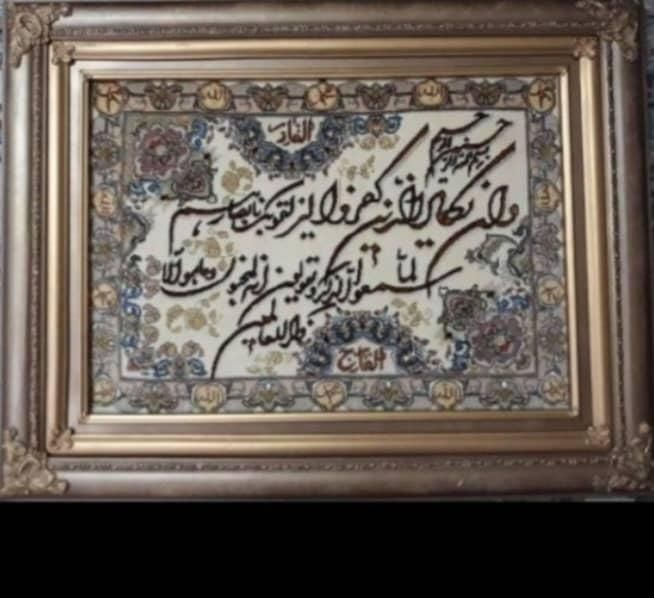 القادر
بسم الله الرحمن الرحیم
وان یکاد الذین کفروا لیزلقونک بابصارهم
لما سمعوا الذکر و یقولون انه لمجنون وما هو الا
ذکر للعالمین
الفاتح